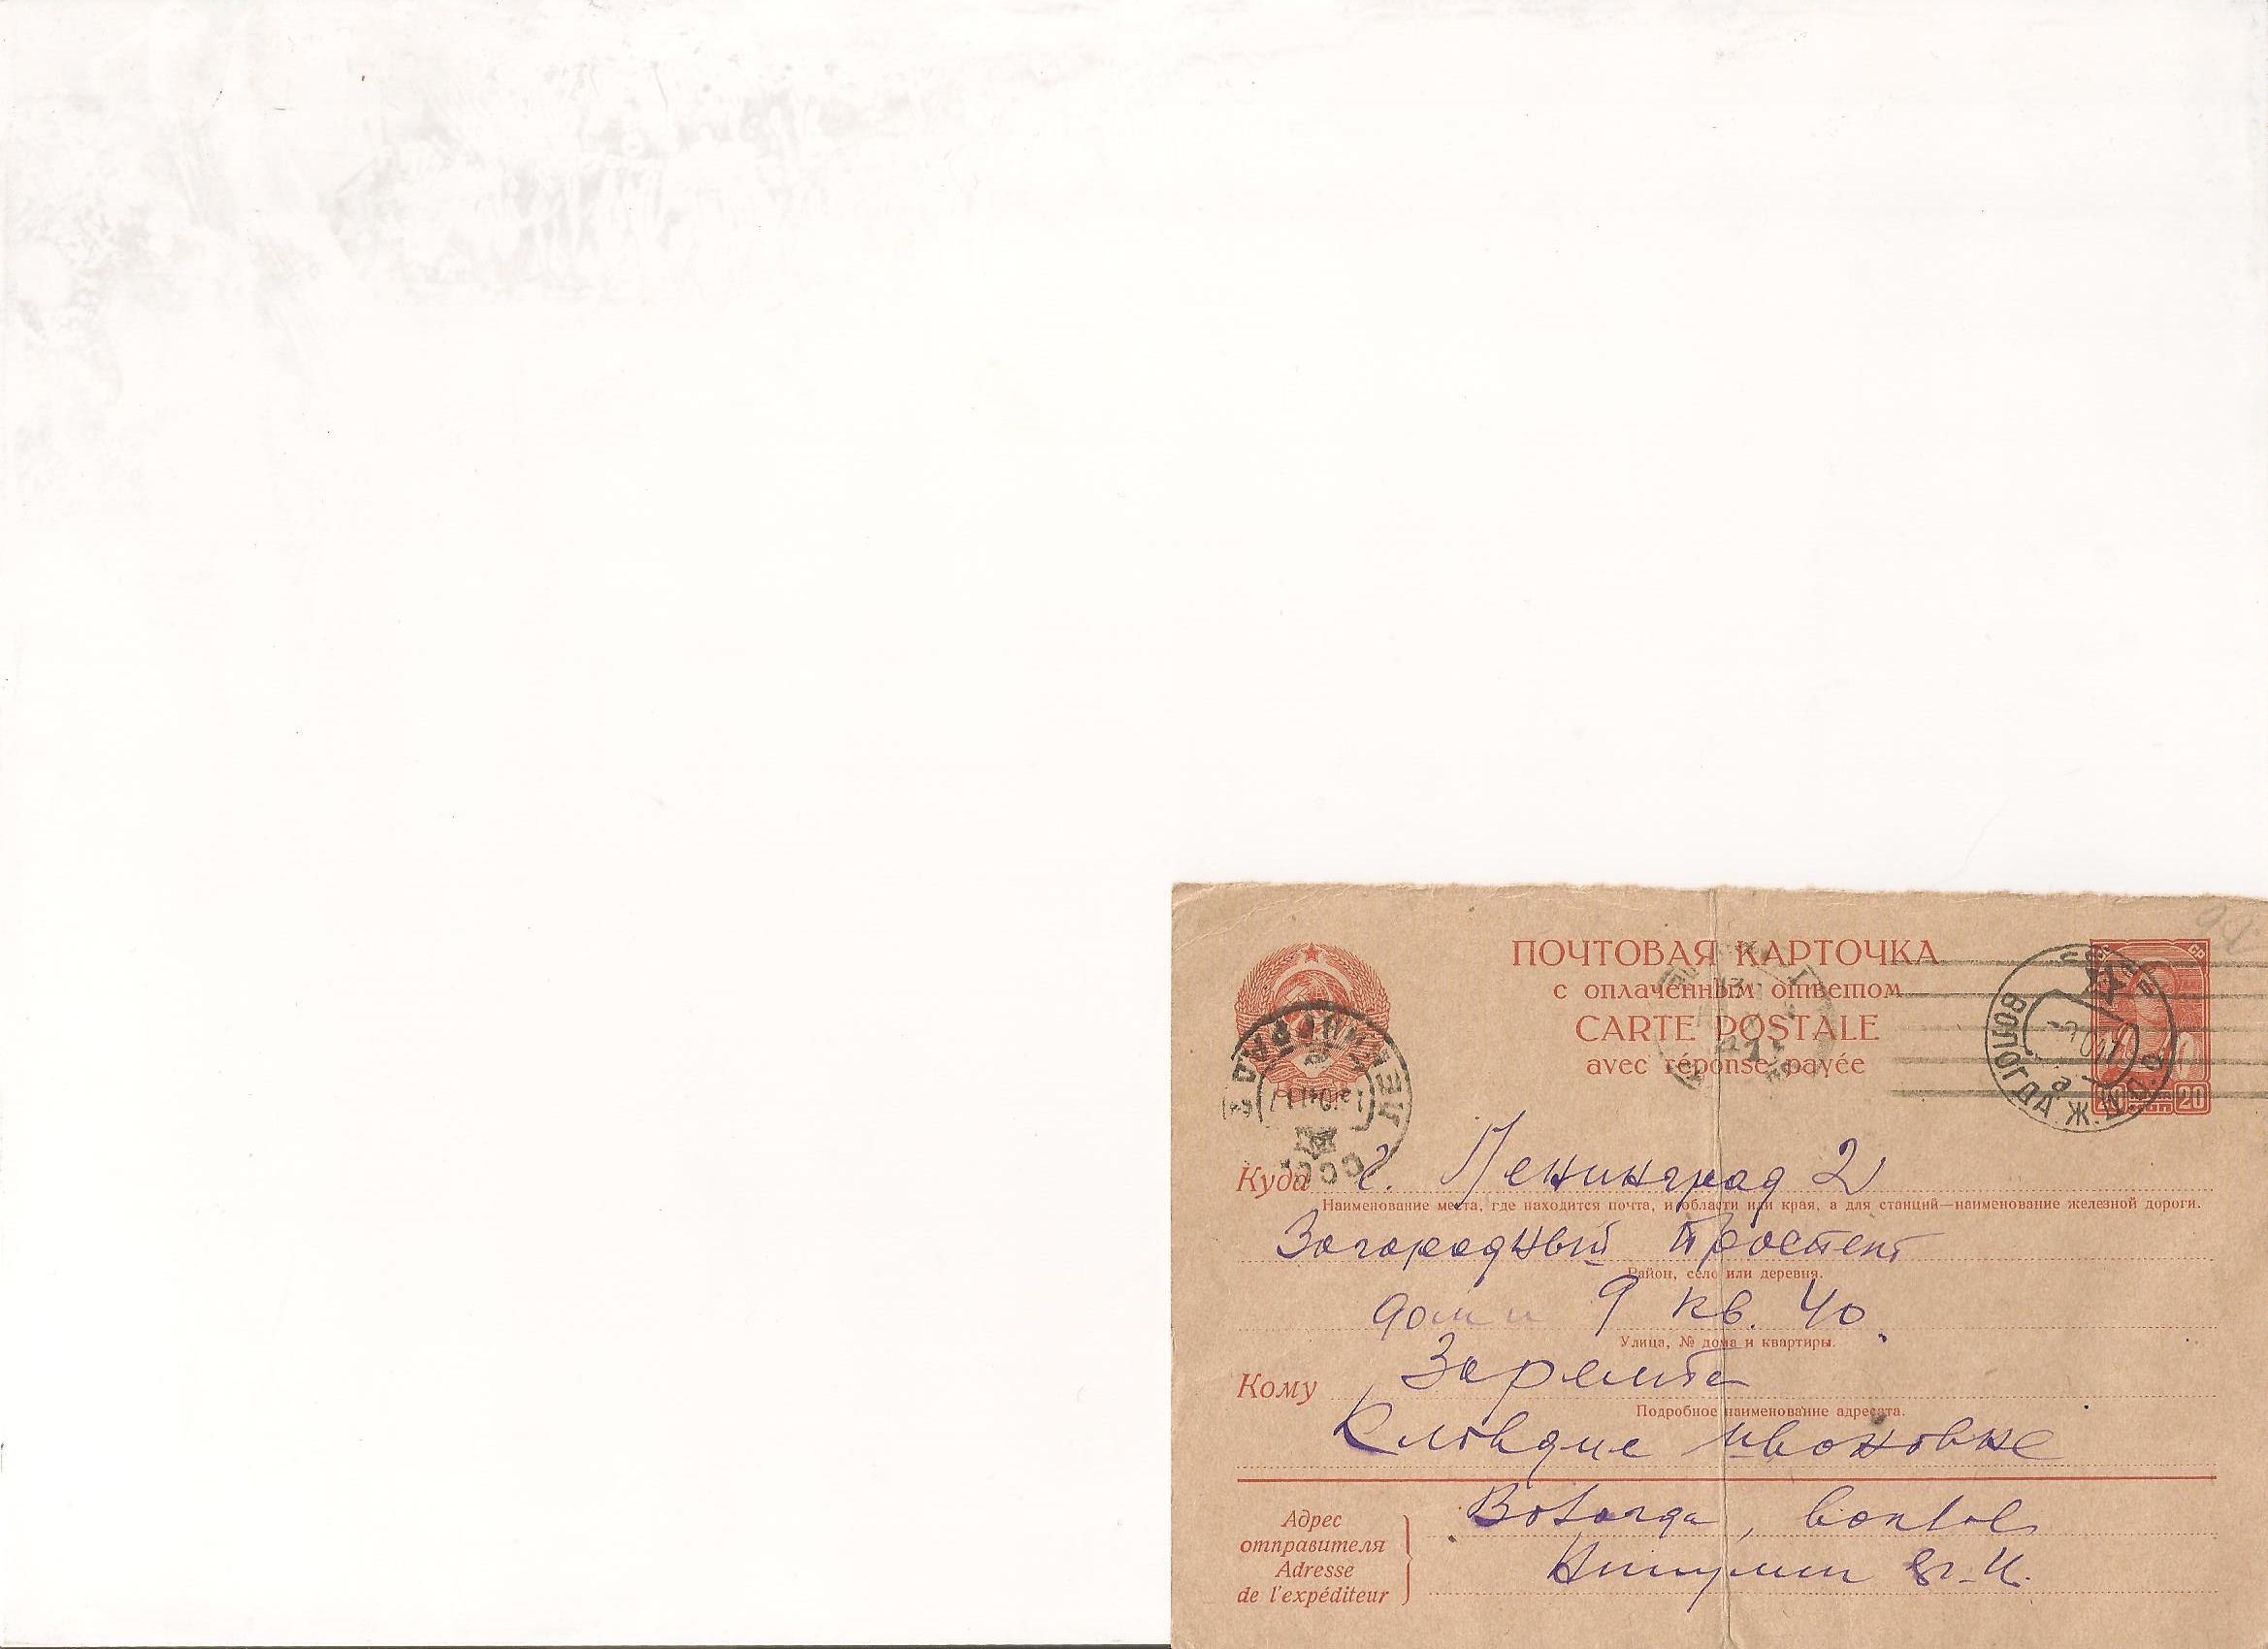 ПОЧТОВАЯ КАРТОЧКА
с оплаченным ответом
CARTE POSTALE
avec réponse payée
ВОЛОГДА Ж.Д.
20
ЛЕНИНГРАД
СССР
Куда г. Ленинград 2
Наименование места, где находится почта, и области или края, а для станций—наименование железной дороги.
Загородный проспект
Район, село или деревня.
дом 9 кв. 40.
Улица, № дома и квартиры.
Кому Заремба
Подробное наименование адресата.
Клавдие Ивановне
Адрес
отправителя
Adresse
de l'expéditeur
Вологда, вокзал
Никулин